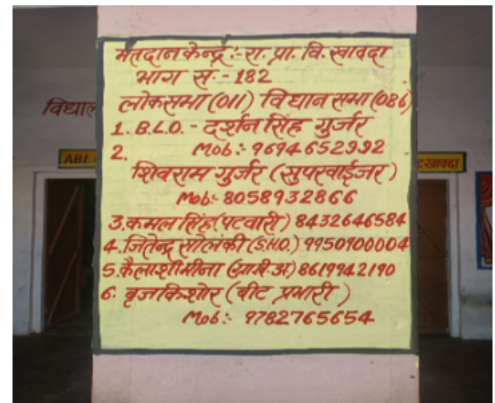 मतदान केन्द्र :- रा. प्रा. वि. खावदा
भाग सं. - 182
लोकसभा (011) विधान सभा (086)
1. B.L.O. - दर्शन सिंह गुर्जर
Mob :- 9694652992
2.
शिवराम गुर्जर (सुपरवाईजर)
Mob :- 8058932866
3. कमल सिंह (पटवारी) 8432646584
4. जितेन्द्र सोलंकी (S.H.O.) 9950900004
5. कैलाशी मीना (ग्रामी. अ) 8619942190
6. बृजकिशोर (बीट प्रभारी)
Mob :- 9782765654
विद्याल
ABL
खावदा